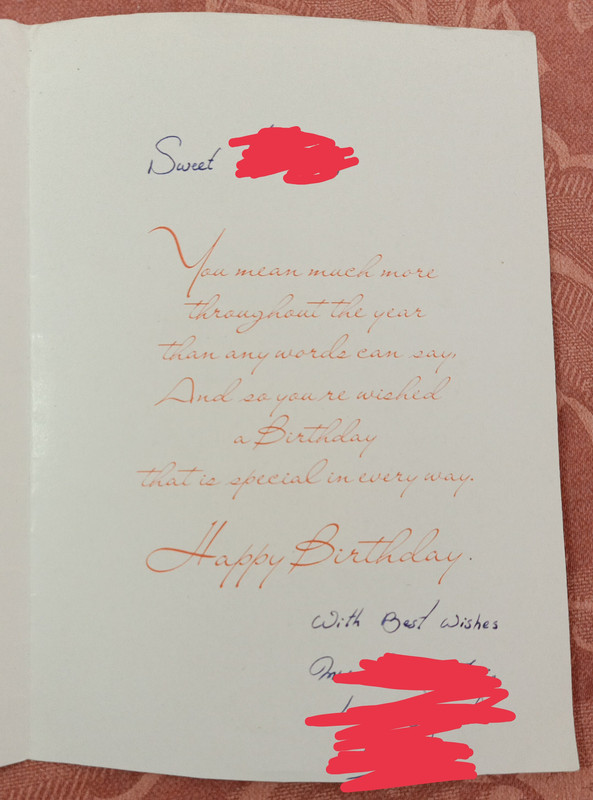 Sweet
You mean much more
throughout the year
than any words can say,
And so you're wished
a Birthday
that is special in every way.
Happy Birthday.
With Best Wishes